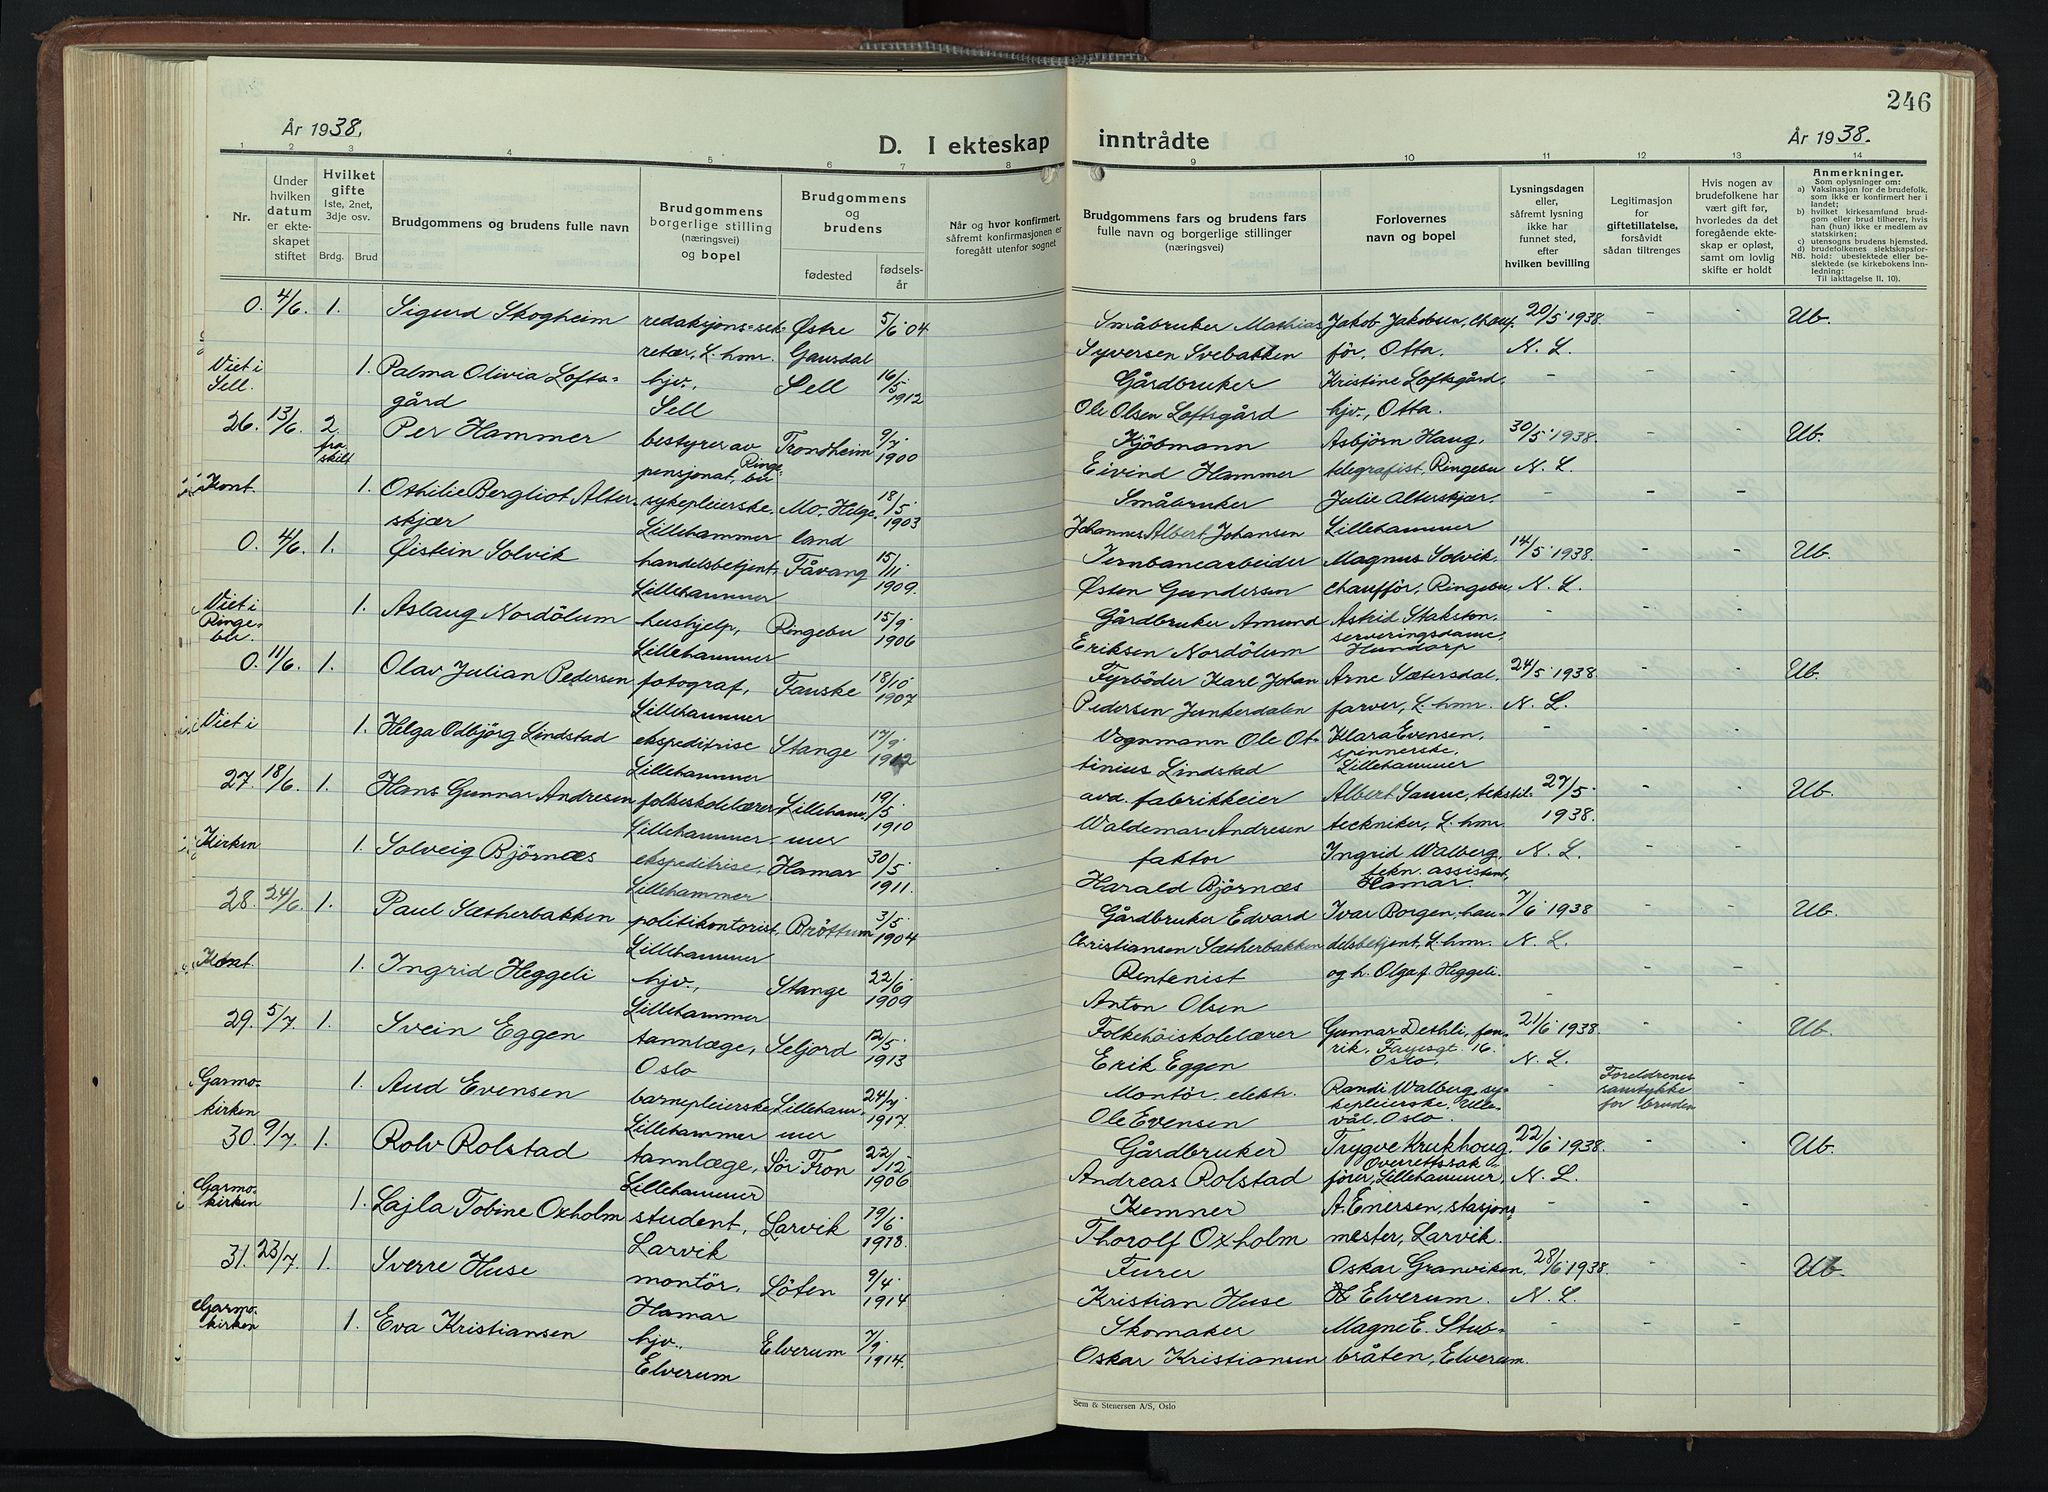 246
År 1938.
D. I ekteskap inntrådte
År 1938.
1 2 3 4 5 6 7 8 9 10 11 12 13 14
Nr.
Under hvilken datum er ekteskapet stiftet
Hvilket gifte 1ste, 2net, 3dje osv.
Brdg. Brud
Brudgommens og brudens fulle navn
Brudgommens borgerlige stilling (næringsvei) og bopel
Brudgommens og brudens
fødested
fødselsår
Når og hvor konfirmert, såfremt konfirmasjonen er foregått utenfor sognet
Brudgommens fars og brudens fars fulle navn og borgerlige stillinger (næringsvei)
Forlovernes navn og bopel
Lysningsdagen eller, såfremt lysning ikke har funnet sted, efter hvilken bevilling
Legitimasjon for giftetillatelse, forsåvidt sådan tiltrenges
Hvis nogen av brudefolkene har vært gift før, hvorledes da det foregående ekteskap er opløst, samt om lovlig skifte er holdt
Anmerkninger.
Som oplysninger om:
a) Vaksinasjon for de brudefolk, som ikke er konfirmert her i landet;
b) hvilket kirkesamfund brudgom eller brud tilhører, hvis han (hun) ikke er medlem av statskirken;
c) utensogns brudens hjemsted.
d) brudefolkenes slektskapsforhold: ubeslektede eller beslektede (se kirkebokens Innledning:
NB. Til iakttagelse II. 10).
0. 4/6. 1. Sigurd Skogheim redaksjonssek- Østre 5/6 04 Småbruker Mathias Jakob Jakobsen, chauf- 20/5 1938. - - Ub.
retær, L.hmr. Gausdal Syversen Svebakken för, Otta. N. L.
Viet i Sell. 1. Palma Olivia Lofts- hjv., Sell 16/5 1912 Gårdbruker Kristine Loftsgård, - - -
gård Sell Ole Olsen Loftsgård hjv., Otta.
26. 13/6. 2 fraskilt Per Hammer bestyrer av Trondheim 9/7 1900 Kjöbmann Asbjörn Haug, 30/5 1938. - - Ub.
pensjonat, Ringebu Eivind Hammer telegrafist, Ringebu N. L.
Kont. 1. Othilie Bergliot Alter- sykepleierske, Mo, Helge- 18/5 1903 Småbruker Julie Alterskjær. - - -
skjær Lillehammer land Johannes Albert Johansen Lillehammer
0. 4/6. 1. Øistein Solvik handelsbetjent, Fåvang 15/11 1909. Jernbanearbeider Magnus Solvik, 14/5 1938. - - Ub.
Lillehammer Østen Gundersen chauffför, Ringebu, N. L.
Viet i Ringebu. 1. Aslaug Nordölum hushjelp, Ringebu 15/9 1906 Gårdbruker Amund Astrid Stakston, - - -
Lillehammer Eriksen Nordölum serveringsdame, Hundorp
0. 11/6. 1. Olav Julian Pedersen fotograf, Fauske 18/10 1907 Fyrböder Karl Johan Arne Sætersdal, 24/5 1938. - - Ub.
Lillehammer Pedersen Junkerdalen farver, L.hmr. N. L.
Viet i 1. Helga Odbjörg Lindstad ekspeditrise Stange 17/9 1912 Vognmann Ole Ot- Klara Evensen, - - -
Lillehammer tinius Lindstad spinnerske, Lillehammer
27. 18/6. 1. Hans Gunnar Andresen folkeskolelærer Lilleham- 19/5 1910 avd. fabrikkeier Albert Sanne, tekstil- 27/5 1938. - - Ub.
Lillehammer mer Waldemar Andresen tekniker, L.hmr.
Kirken 1. Solveig Björnæs ekspeditrise, Hamar 30/5 1911. faktor Ingrid Walberg, N. L. - -
Lillehammer Harald Björnæs tekn. assistent, Hamar.
28. 24/6. 1. Paul Sætherbakken politikontorist, Bröttum 3/5 1904 Gårdbruker Edvard Ivar Borgen, han- 7/6 1938 - - Ub.
Lillehammer Christiansen Sætherbakken delsbetjent, L.hmr. N. L.
Kont. 1. Ingrid Heggeli hjv., Stange 22/6 1909 Rentenist og h. Olga f. Heggeli. - - -
Lillehammer Anton Olsen
29. 5/7. 1. Svein Eggen tannlæge, Seljord 12/5 1913 Folkehöiskolelærer Gunnar Dethli, fen- 21/6 1938. - - Ub.
Oslo Erik Eggen rik, Fayesgt. 16. Oslo, N. L.
Garmokirken 1. Aud Evensen barnepleierske Lilleham- 24/7 1917. Montör, elektr. Randi Walberg, sy- - Foreldrenes samtykke for bruden -
Lillehammer mer Ole Evensen kepleierske, Ullevål, Oslo.
30. 9/7. 1. Rolv Rolstad tannlæge, Sör-Fron 22/12 1906 Gårdbruker Trygve Krukhoug. 22/6 1938. - - Ub.
Lillehammer Andreas Rolstad Overrettssakförer, Lillehammer, N. L.
Garmokirken 1. Lajla Tobine Oxholm student, Larvik 19/6 1918. Kemner A. Enersen, stasjons- - - -
Larvik Thorolf Oxholm mester, Larvik.
31. 23/7. 1. Sverre Huse montör, Löten 9/4 1914 Furer Oskar Granviken, 28/6 1938. - - Ub.
Hamar Kristian Huse Elverum. N. L.
Garmokirken 1. Eva Kristiansen hjv., Elverum 7/9 1914. Skomaker Magne E. Stub- - - -
Elverum Oskar Kristiansen bråten, Elverum.
Sem & Stenersen A/S, Oslo